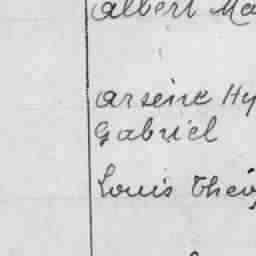 Albert Ma
Arsène Hy
Gabriel
Louis Théo